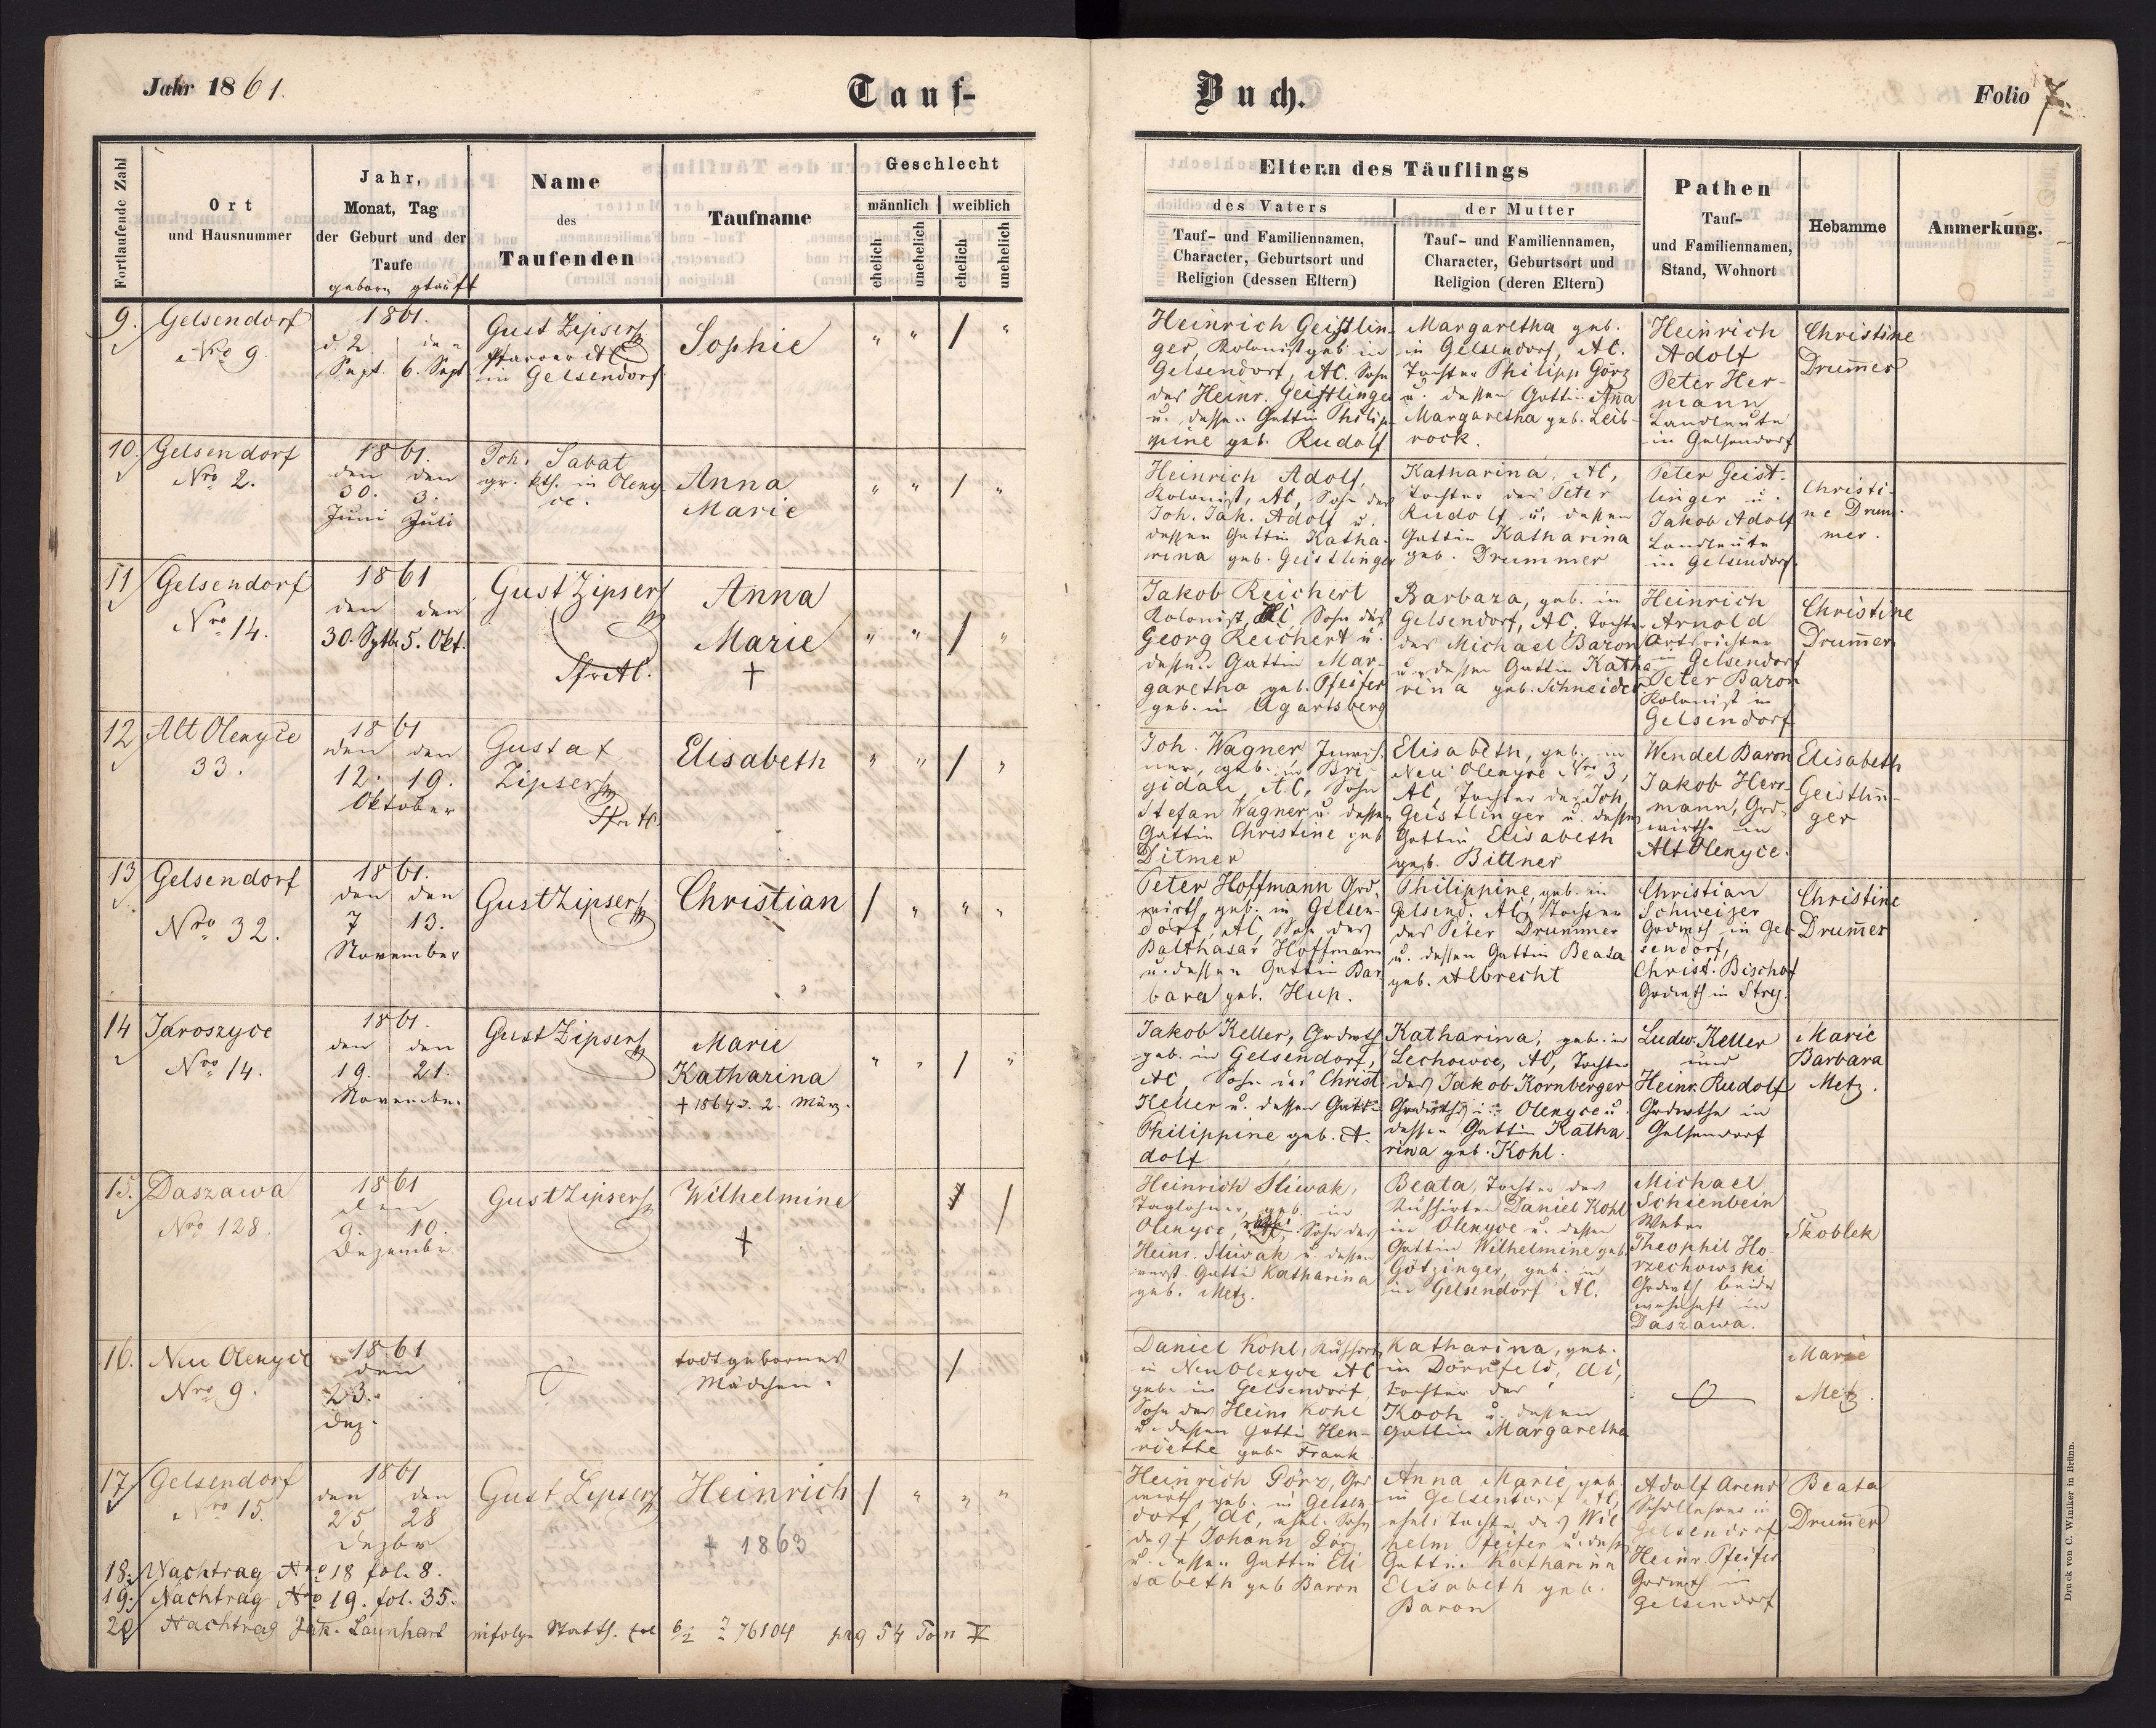 Jahr 1861.
Tauf-
Buch.
Folio 7.
Fortlaufende Zahl
Ort
und Hausnummer
Jahr,
Monat, Tag
der Geburt und der
Taufe
geboren getauft
Name
des
Taufenden
Taufname
Geschlecht
männlich weiblich
ehelich unehelich ehelich unehelich
Eltern des Täuflings
des Vaters
Tauf- und Familiennamen,
Character, Geburtsort und
Religion (dessen Eltern)
der Mutter
Tauf- und Familiennamen,
Character, Geburtsort und
Religion (deren Eltern)
Pathen
Tauf-
und Familiennamen,
Stand, Wohnort
Hebamme
Anmerkung.
9. Gelsendorf
Nro 9.
1861.
d 2. den
Sept. 6. Sept
Gust Zipser
Pfarrer AC
in Gelsendorf
Sophie
" " / "
Heinrich Geistlin-
ger, Kolonist geb in
Gelsendorf, AC. Sohn
des Heinr. Geistlinger
u. dessen Gattin Philip-
pine geb. Rudolf
Margaretha geb.
in Gelsendorf, AC.
Tochter Philipp Görz
u. dessen Gattin Anna
Margaretha geb. Leib-
rock.
Heinrich
Adolf
Peter Her-
mann
Landleute
in Gelsendorf
Christine
Drum̄er
10. Gelsendorf
Nro 2.
1861.
den den
30. 3.
Juni Juli
Joh. Sabat
gr. kth. in Oleny
ce.
Anna
Marie
" " / "
Heinrich Adolf,
Kolonist, AC, Sohn des
Joh. Jak. Adolf u.
dessen Gattin Katha-
rina geb. Geistlinger
Katharina, AC,
Tochter des Peter
Rudolf u. dessen
Gattin Katharina
geb. Drummer
Peter Geist-
linger u.
Jakob Adolf
Landleute
in Gelsendorf.
Christi-
ne Drum-
mer.
11 Gelsendorf
Nro 14.
1861
den den
30. Sptbr 5. Okt.
Gust Zipser
Pfr AC.
Anna
Marie
†
" " / "
Jakob Reichert
Kolonist, AC, Sohn des
Georg Reichert u.
dessen Gattin Mar-
garetha geb. Pfeifer
geb. in Ugartsberg
Barbara, geb. in
Gelsendorf, AC. Tochter
des Michael Baron
u. dessen Gattin Katha-
rina geb. Schneider
Heinrich
Arnold
Ortsrichter
in Gelsendorf
Peter Baron
Kolonist in
Gelsendorf
Christine
Drum̄er
12 Alt Olenyce
33.
1861
den den
12. 19.
Oktober
Gustaf
Zipser
Pfr AC.
Elisabeth
" " / "
Joh. Wagner,
geb. in Bri-
gidau, AC, Sohn
Stefan Wagner u. dessen
Gattin Christine geb
Ditmer
Elisabeth, geb. in
Neu Olenyce Nro 3,
AC, Tochter des Joh.
Geistlinger u. dessen
Gattin Elisabeth
geb. Bittner
Wendel Baron
Jakob Herr-
mann, Grd-
wirthe in
Alt Olenyce.
Elisabeth
Geistlin-
ger
13 Gelsendorf
Nro 32.
1861.
den den
7 13.
November
Gust Zipser
Christian
/ " " "
Peter Hoffmann Grd-
wirth, geb. in Gelsen-
dorf, AC, Sohn des
Balthasar Hoffmann
u. dessen Gattin Bar
bara geb. Hup.
Philippine, geb. in
Gelsend. AC, Tochter
des Peter Drummer
u. dessen Gattin Beata
geb. Albrecht
Christian
Schweizer
Grdwth in Gel-
sendorf,
Christ. Bischof
Grdwth in Stryj.
Christine
Drum̄er
14 Jaroszyce
Nro 14.
1861.
den den
19. 21.
November
Gust Zipser
Marie
Katharina
† 1864 d. 2. März.
" " / "
Jakob Keller, Grdwth
geb. in Gelsendorf,
AC, Sohn des Christ.
Keller u. dessen Gattin
Philippine geb. A-
dolf
Katharina, geb. in
Lechowce, AC, Tochter
des Jakob Kornberger
Grdwths in Olenyce u.
dessen Gattin Katha-
rina geb. Kohl.
Ludw. Keller
und
Heinr. Rudolf
Grdwthe in
Gelsendorf
Marie
Barbara
Metz.
15. Daszawa
Nro 128.
1861
den
9. 10.
Dezember
Gust Zipser
Wilhelmine
†
/
Heinrich Sliwak,
Taglöhner, geb. in
Olenyce, Sohn des
Heinr. Sliwak u. dessen
verst. Gattin Katharina
geb. Metz.
Beata, Tochter des
Daniel Kohl
in Olenyce u. dessen
Gattin Wilhelmine geb.
Götzinger, geb.
in Gelsendorf AC.
Michael
Schienbein
Weber
Theophil Ho-
rzechowski
Grdwth beide
wohnhaft in
Daszawa.
Skoblek
16. Neu Olenyce
Nro 9.
1861
den
23.
Dez.
todtgebornes
Mädchen.
/
Daniel Kohl,
in Neu Olenyce AC
geb. in Gelsendorf,
Sohn des Heinr Kohl
u. dessen Gattin Hen-
riette geb. Frank
Katharina, geb.
in Dornfeld, AC,
Tochter des
Koch u. dessen
Gattin Margaretha
Marie
Metz.
17. Gelsendorf
Nro 15.
1861
den den
25 28
Dezbr
Gust Zipser
Heinrich
† 1863
/ " " "
Heinrich Görz, Grd
wirth, geb. in Gelsen-
dorf, AC, ehel. Sohn
des † Johann Görz
u. dessen Gattin Eli
sabeth geb Baron
Anna Marie, geb.
in Gelsendorf AC,
ehel. Tochter des Wil
helm Pfeifer u. dess
Gattin Katharina
Elisabeth geb.
Baron
Adolf Arend
Schullehrer in
Gelsendorf
Heinr. Pfeifer
Grdwth in
Gelsendorf
Beata
Drum̄er
18. Nachtrag Nro 18 fol. 8.
19. Nachtrag Nro 19. fol. 35.
20 Nachtrag Jak. Launhart infolge Statth. 76104 pag 54 Tom V
Druck von C. Winiker in Brünn.